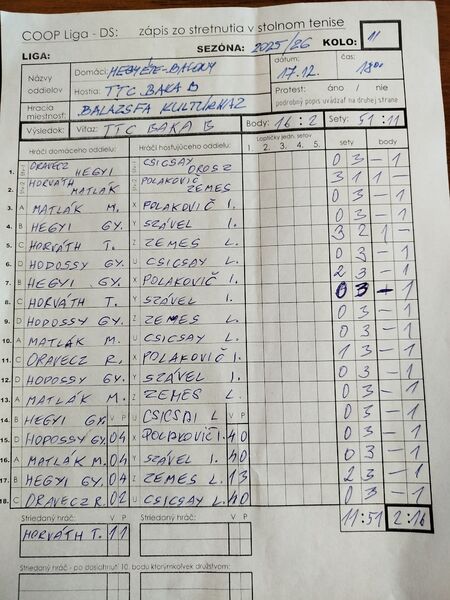 COOP Liga - DS: zápis zo stretnutia v stolnom tenise
LIGA: SEZÓNA: 2025/26 KOLO: 11
Názvy oddielov Domáci: HEGYÉTE-BAFONY dátum: 17.12. čas: 1800
Hostia: TTC BAKA B Protest: áno / nie
Hracia miestnosť: BALAZSFA KULTÚRHÁZ podrobný popis uvádzať na druhej strane
Výsledok: Víťaz: TTC BAKA B Body: 16 : 2 Sety: 51 : 11
Hráči domáceho oddielu: Hráči hosťujúceho oddielu: Loptičky jedn. setov 1. 2. 3. 4. 5. sety body
1. ORAVECZ HEGYI CSICSAY OROSZ 0 3 - 1
2. HORVÁTH MATLÁK POLAKOVIČ ZEMES 3 1 1 -
3. A MATLÁK M. X POLAKOVIČ I. 0 3 - 1
4. B HEGYI GY. Y SZÁVEL I. 0 3 - 1
5. C HORVÁTH T. Z ZEMES L. 3 2 1 -
6. D HODOSSY GY. U CSICSAY L. 0 3 - 1
7. B HEGYI GY. X POLAKOVIČ I. 2 3 - 1
8. C HORVÁTH T. Y SZÁVEL I. 0 3 - 1
9. D HODOSSY GY. Z ZEMES L. 0 3 - 1
10. A MATLÁK M. U CSICSAY L. 0 3 - 1
11. C ORAVECZ R. X POLAKOVIČ I. 1 3 - 1
12. D HODOSSY GY. Y SZÁVEL I. 0 3 - 1
13. A MATLÁK M. Z ZEMES L. 0 3 - 1
14. B HEGYI GY. V P U CSICSAI L V P 0 3 - 1
15. D HODOSSY GY. 0 4 X POLAKOVIČ I. 4 0 0 3 - 1
16. A MATLÁK M. 0 4 Y SZÁVEL I. 4 0 0 3 - 1
17. B HEGYI GY. 0 4 Z ZEMES L. 1 3 2 3 - 1
18. C ORAVECZ R. 0 2 U CSICSAY L. 4 0 0 3 - 1
Striedaný hráč: V P Striedaný hráč: V P 11:51 2:16
HORVÁTH T. 1 1
Striedaný hráč - po dosiahnutí 10. bodu ktorýmkoľvek družstvom: